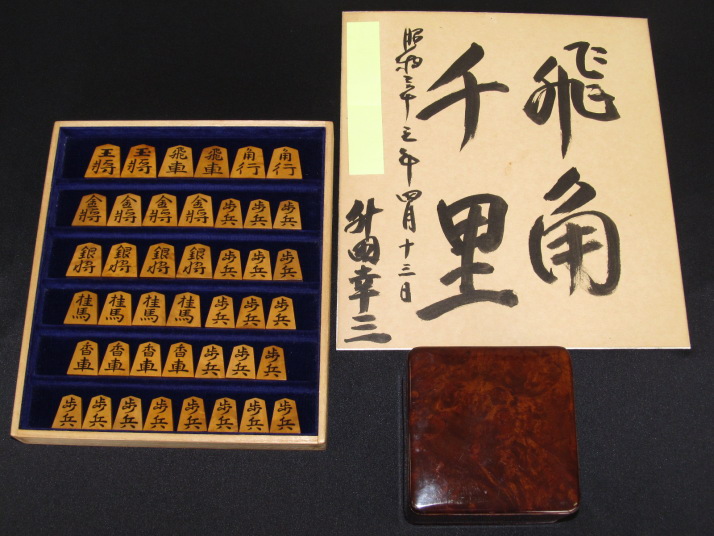 王將 玉將 飛車 飛車 角行 角行
金將 金將 金將 金將 歩兵 歩兵 歩兵
銀將 銀將 銀將 銀將 歩兵 歩兵 歩兵
桂馬 桂馬 桂馬 桂馬 歩兵 歩兵 歩兵
香車 香車 香車 香車 歩兵 歩兵 歩兵
歩兵 歩兵 歩兵 歩兵 歩兵 歩兵 歩兵 歩兵
飛角
千里
昭和三十三年四月十三日
升田幸三